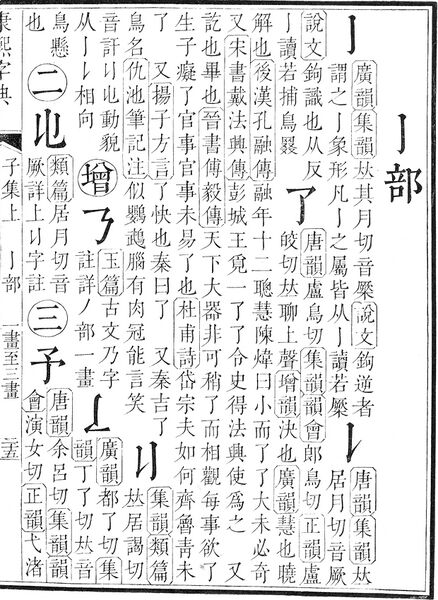 亅部
亅 廣韻集韻𠀤其月切音橜說文鉤逆者
謂之亅象形凡亅之屬皆从亅讀若橜
𠄌 唐韻集韻𠀤
居月切音厥
說文鉤識也从反
亅讀若捕鳥罬
了 唐韻盧鳥切集韻韻會郎鳥切正韻盧
皎切𠀤聊上聲增韻決也廣韻慧也曉
解也後漢孔融傳融年十二聰慧陳煒曰小而了了大未必奇
又宋書戴法興傳彭城王覓一了了令史得法興使爲之 又
訖也畢也晉書傅毅傳天下大器非可稍了而相觀每事欲了
生子癡了官事官事未易了也杜甫詩岱宗夫如何齊魯青未
了 又揚子方言了快也秦曰了 又秦吉了
鳥名仇池筆記注似鸚鵡腦有肉冠能言笑
𠄍 集韻類篇
𠀤居謁切
音訐𠄍𠄐動貌
从亅𠄌相向
增 𠄎 玉篇古文乃字
註詳丿部一畫
𠄏 廣韻都了切集
韻丁了切𠀤音
鳥懸
也
二 𠄐 類篇居月切音
厥詳上𠄍字註
三 予 唐韻余呂切集韻韻
會演女切正韻弋渚
康熙字典 子集上 亅部 一畫至三畫 二五